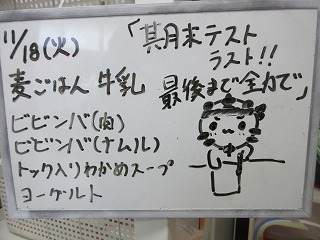 11/18(火)
「其月末テスト
ラスト!!
最後まで全力で」
麦ごはん 牛乳
ビビンバ(肉)
ビビンバ(ナムル)
トック入りわかめスープ
ヨーグルト